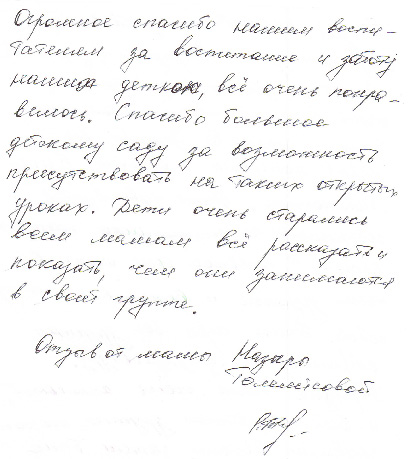 Огромное спасибо нашим воспи-
тателям за воспитание и заботу
наших деток, всё очень понра-
вилось. Спасибо большое
детскому саду за возможность
присутствовать на таких открытых
уроках. Дети очень старались
всем мамам всё рассказать и
показать, чем они занимаются
в своей группе.
Отзыв от мамы Назары